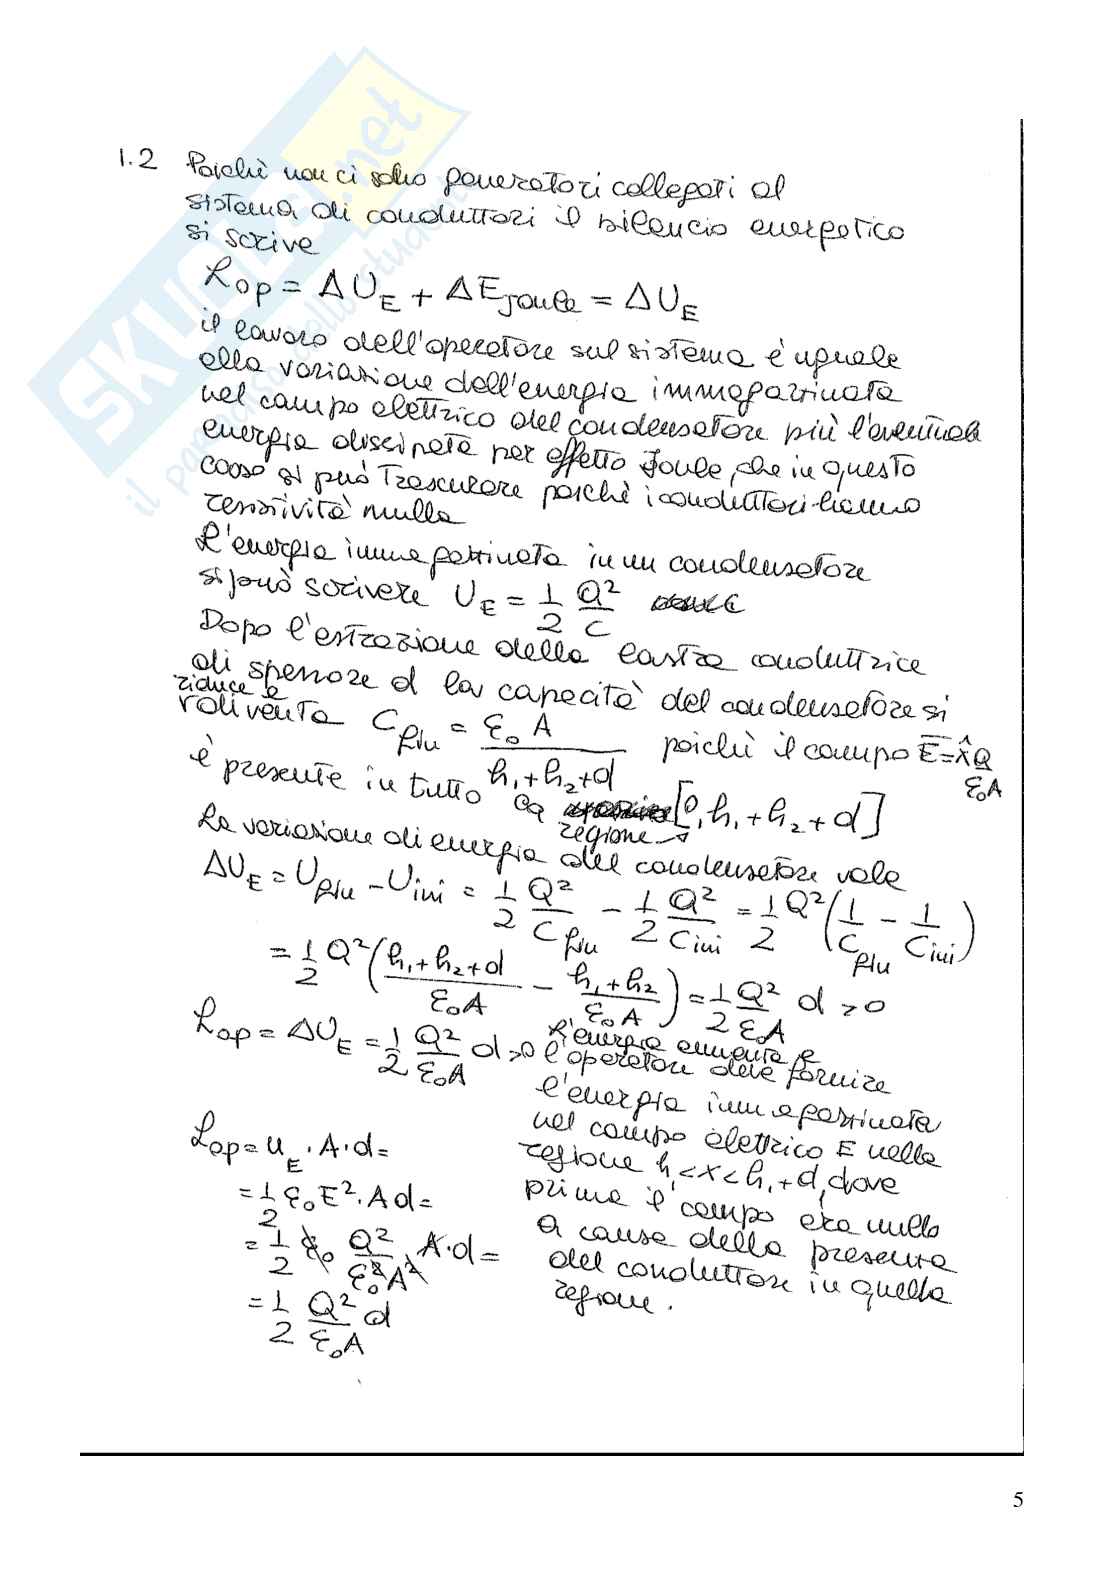 SKUOLA.net
il paradiso dello studente
1.2 Poichè non ci sono generatori collegati al
sistema di conduttori il bilancio energetico
si scrive
L_op = ΔU_E + ΔE_Joule = ΔU_E
il lavoro dell'operatore sul sistema è uguale
alla variazione dell'energia immagazzinata
nel campo elettrico del condensatore più l'eventuale
energia dissipata per effetto Joule, che in questo
caso si può trascurare poichè i conduttori hanno
resistività nulla
L'energia immagazzinata in un condensatore
si può scrivere U_E = 1/2 Q²/C
Dopo l'estrazione della lastra conduttrice
di spessore d la capacità del condensatore si
riduce e
ridiventa C_fin = ε₀A/(h₁+h₂+d) poichè il campo E̅=x̂ Q/ε₀A
è presente in tutto la regione → [0, h₁+h₂+d]
La variazione di energia del condensatore vale
ΔU_E = U_fin - U_ini = 1/2 Q²/C_fin - 1/2 Q²/C_ini = 1/2 Q²(1/C_fin - 1/C_ini)
= 1/2 Q²((h₁+h₂+d)/ε₀A - (h₁+h₂)/ε₀A) = 1/2 Q²/ε₀A d > 0
L_op = ΔU_E = 1/2 Q²/ε₀A d > 0 L'energia aumenta e
l'operatore deve fornire
l'energia immagazzinata
nel campo elettrico E nella
regione h₁<x<h₁+d, dove
prima il campo era nullo
a causa della presenza
del conduttore in quella
regione.
L_op = u_E · A · d =
= 1/2 ε₀E² · A d =
= 1/2 ε₀ Q²/ε₀²A² A·d =
= 1/2 Q²/ε₀A d
5